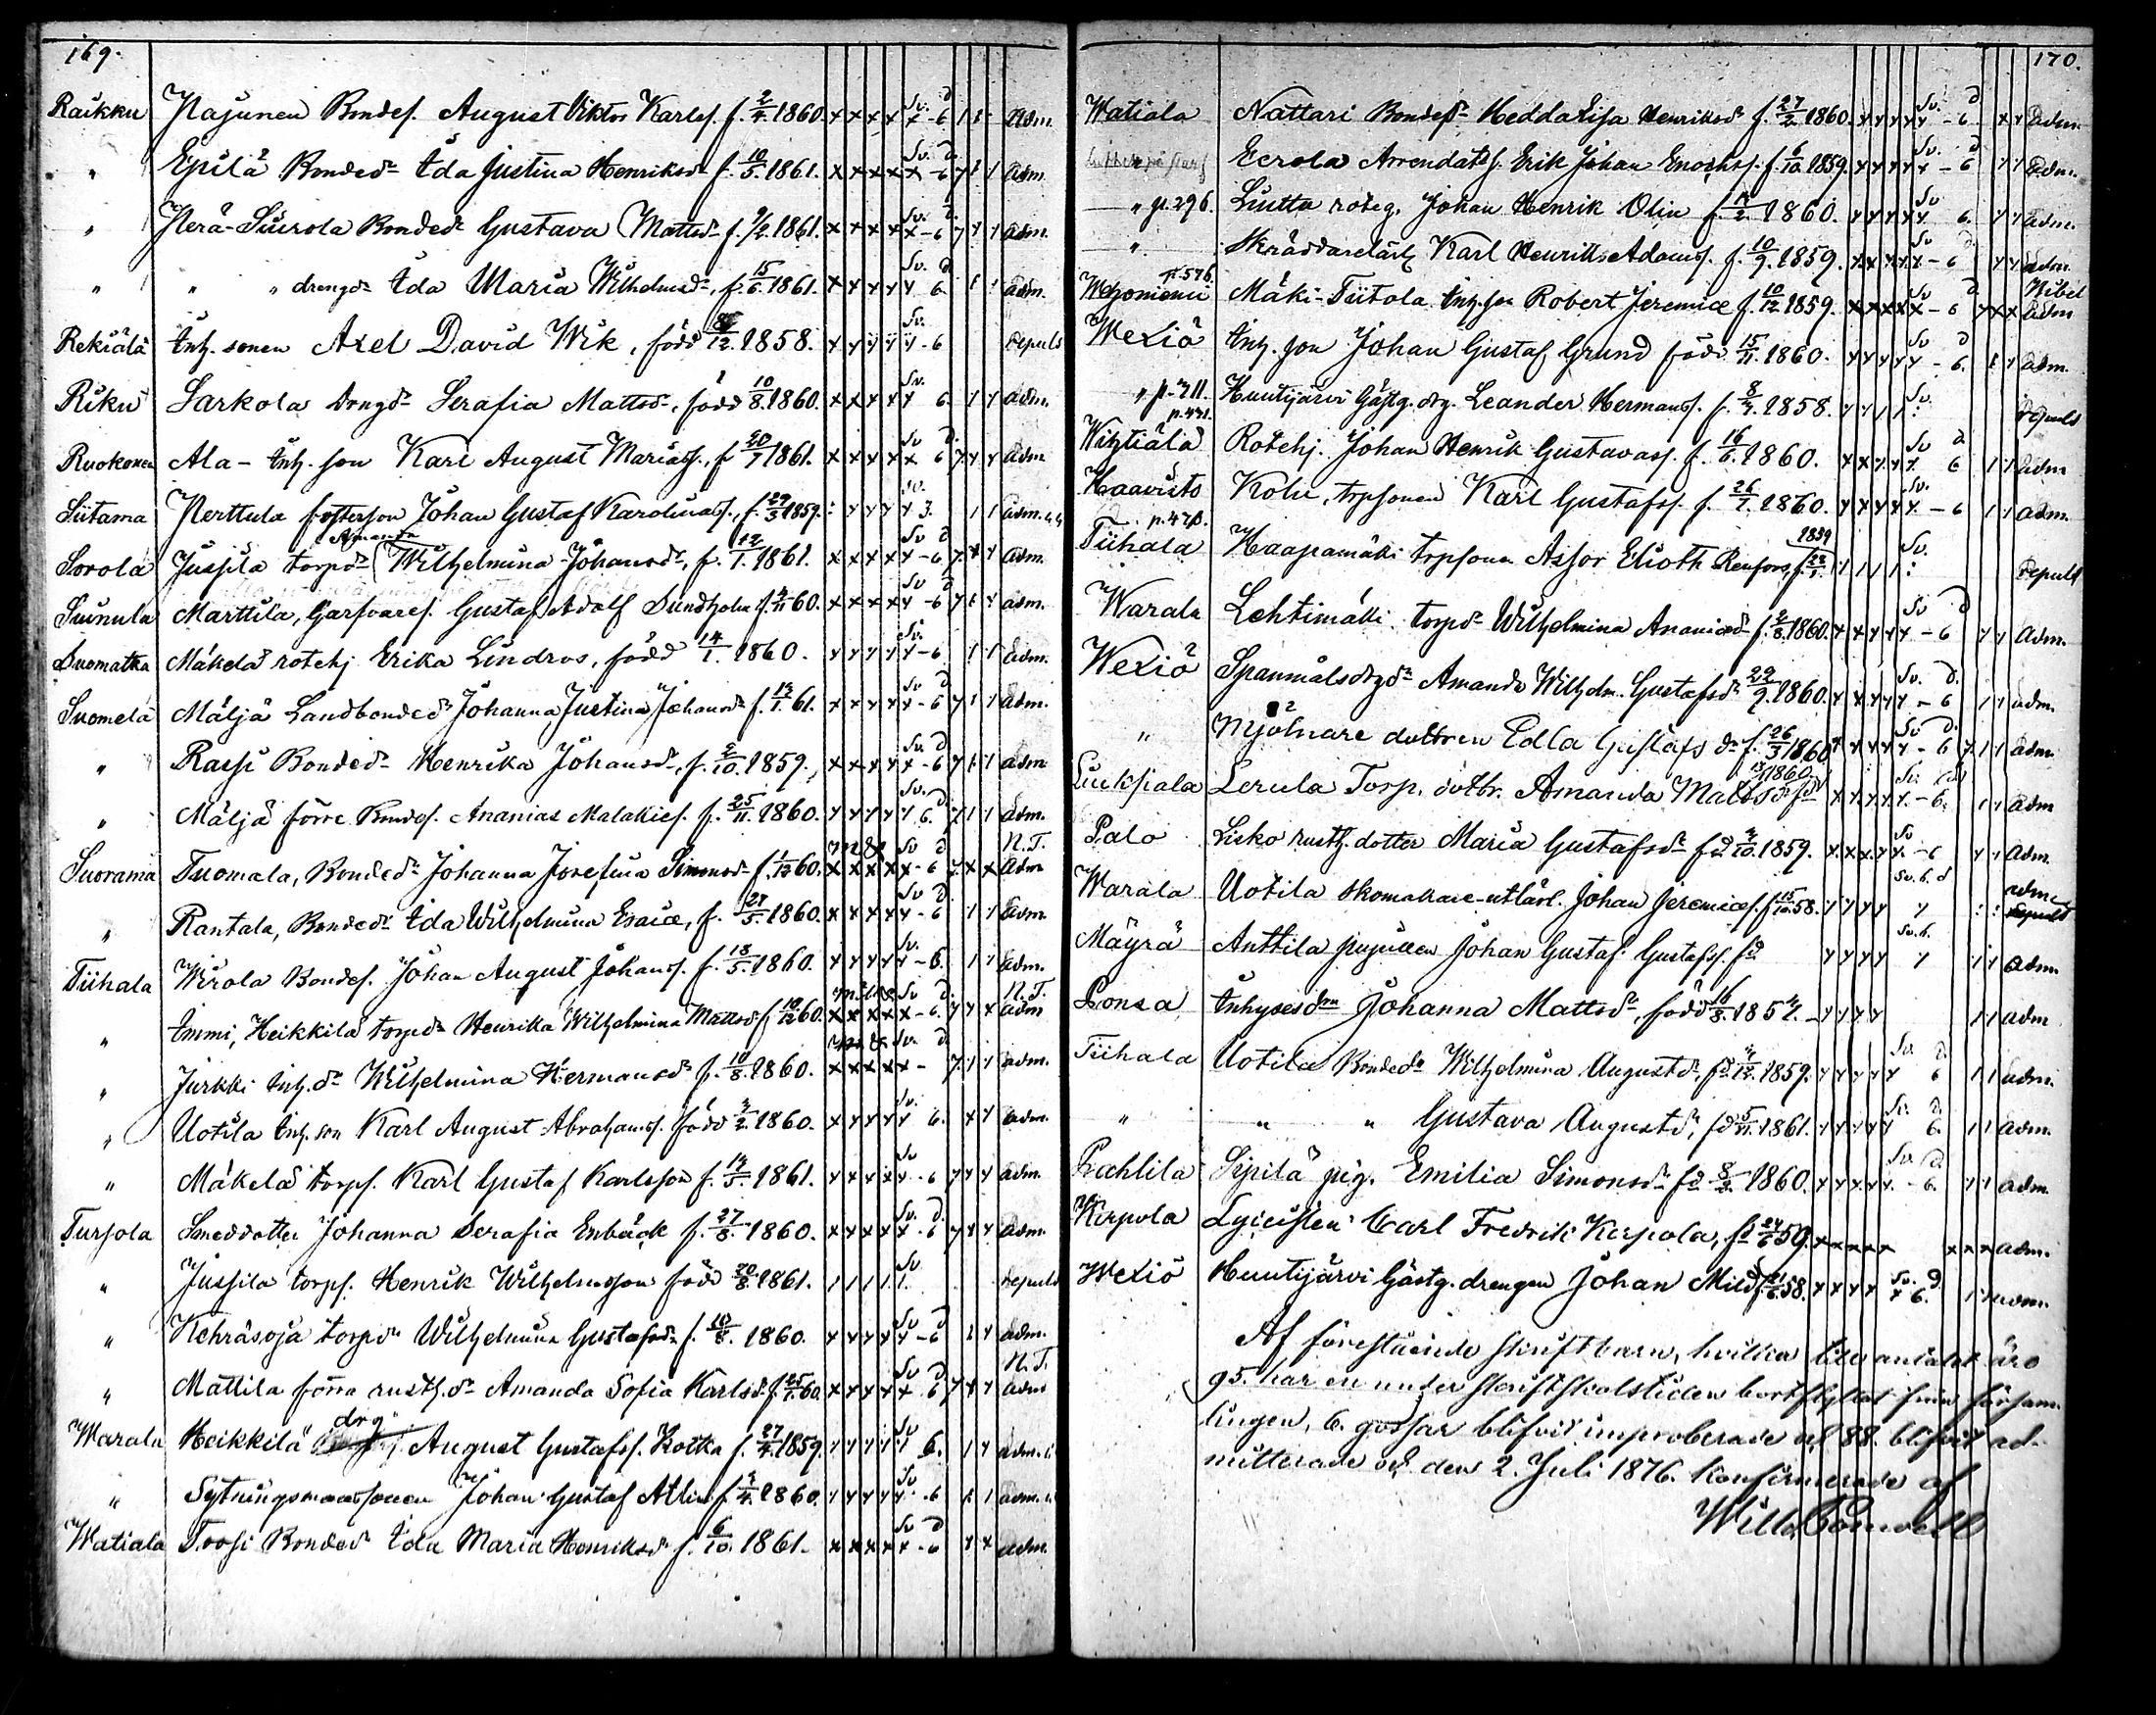 169.
Raikku Najunen Bondes. August Viktor Karlss. f. 2/4. 1860. x x x x x - 6 Sv. d. Adm.
" Epilä Bondedr Ida Justina Henriksdr f. 10/5. 1861. x x x x x - 6 Sv. d. 7 adm.
" Perä-Suurola Bondedr Gustava Mattsdr f. 9/2. 1861. x x x x x - 6 Sv. d. 7 adm.
" " " drengdr Ida Maria Wilhelmsdr, f. 15/6. 1861. Sv. d. 6. adm.
Rekiälä Inh. sonen Axel David Wik, född /12. 1858. Sv. - 6 repuls
Riku Sarkola Drngdr Serafia Mattsdr, född 10/8. 1860. Sv. 6. adm.
Ruokonen Ala- Inh. son Karl August Mariass., f. 20/7 1861. Sv d. 6 7 adm
Siitama Perttula fosterson Johan Gustaf Karolinass., f. 29/3 1859. Sv. 3. adm.
Sorola Jussila torpdr Amanda Wilhelmina Johansdr, f. 12/1. 1861. Sv d - 6 7 adm.
Suinula Marttila, Garfvares. Gustaf Adolf Sundholm f. 4/11 60. Sv d - 6 7 adm.
Suomatka Mäkelä rotehj Erika Lindros, född 14/1. 1860. Sv. - 6 adm.
Suomela Mäljä Landbondedr Johanna Justina Johansdr f. 14/1. 61. Sv d - 6 7 adm.
" Rassi Bondedr Henrika Johansdr, f. 2/10. 1859. Sv. d. - 6 7 adm
" Mäljä förre Bondes. Ananias Malakies. f. 25/11. 1860. Sv. d. 6. 7 adm.
Suorama Tuomala, Bondedr Johanna Josefina Simonsdr f. 1/12 60. Sv d - 6 7. x x N.T. Adm
" Rantala, Bondedr Ida Wilhelmina Esaiæ, f. 27/5. 1860. Sv d. - 6 adm.
Tiihala Wirola Bondes. Johan August Johanss. f. 18/5. 1860. Sv. - 6. adm.
" Immi, Heikkilä torpdr Henrika Wilhelmina Mattsdr f. 10/12 60. Sv d. - 6. 7 N.T. adm
" Jurkki inh. dr Wilhelmina Hermansdr f. 10/8. 1860. Sv. d. - 7. adm.
" Uotila Inh. son Karl August Abrahamss. född 3/2. 1860. Sv. 6. adm.
" Mäkelä torps. Karl Gustaf Karlsson f. 14/5. 1861. Sv - 6 7 adm.
Turjola Smeddotter Johanna Serafia Enbäck f. 27/8. 1860. Sv. d. - 6 7 adm.
" Jussila torps. Henrik Wilhelmsson född 20/8. 1861. Sv repuls
" Kehräsoja torpdr Wilhelmina Gustafsdr f. 10/8. 1860. Sv d - 6 adm.
" Mattila förra rusth.dr Amanda Sofia Karlsdr f. 25/1. 60. Sv d - 6 7 N.T. adm
Warala Heikkilä drg August Gustafss. Kotka f. 27/4. 1859. Sv 6. adm.
" Sytningsmanssonen Johan Gustaf Allin f. 3/4. 1860. Sv - 6 adm.
Watiala Toosi Bondedr Ida Maria Henriksdr f. 6/10. 1861. Sv d - 6 adm.
170.
Watiala Nattari Bondesdr Hedda Lisa Henriksdr f. 27/2. 1860. Sv. d - 6. adm.
Eerola Arrendats. Erik Johan Enochss. f. 6/10. 1859. Sv. d - 6 adm.
" p. 296. Liutta roteg. Johan Henrik Olin f. 14/2. 1860. Sv 6. adm.
" Skräddarelärl Karl Henrik Adamss. f. 10/9. 1859. Sv d. - 6 adm.
p. 576. Wehoniemi Mäki-Tiitola Inh. son Robert Jeremiæ f. 10/12 1859. Sv d - 6 7 x x Bibel adm
Wexiö Inh. son Johan Gustaf Grund född 15/11. 1860. Sv d - 6. adm.
" p. 711. Huutijärvi Gästg. drg. Leander Hermanss. f. 8/7. 1858. Sv. repuls
p. 471. Wihtiälä Rotehj. Johan Henrik Gustavass. f. 16/6. 1860. Sv d. 6 adm
Haavisto Kohi, torpsonen Karl Gustafss. f. 26/7 1860. Sv. - 6 adm.
p. 478. Tiihala Haapamäki torpsonen Assor Elioth Renfors, f. 22/1. 1859 Sv. repuls
Warala Lehtimäki torpdr Wilhelmina Ananiædr f. 2/8. 1860. Sv d - 6 adm.
Wexiö Spanmålsdrgdr Amanda Wilhelm. Gustafsdr 22/9. 1860. Sv. d. - 6 adm.
" Mjölnare dottren Edla Gustafsdr f. 26/3 1860 Sv d. - 6 7. adm
Liuksiala Lerula Torp. dottr. Amanda Mattsdr fd 1860. Sv. d - 6. adm
Palo Lisko rusth. dotter Maria Gustafsdr fd 3/10. 1859. Sv - 6 adm.
Warala Uotila skomakare-utlärl. Johan Jeremiæs. f. 15/10. 58. Sv. b. d adm. repuls
Mäyrä Anttila pupillen Johan Gustaf Gustafss. fd Sv. b. adm.
Ponsa Inhysesdrn Johanna Mattsdr, född 16/8. 1857. adm.
Tiihala Uotila Bondedr Wilhelmina Augustdr, fd /12. 1859. Sv. d. 6 adm.
" " " Gustava Augustdr, fd 5/11. 1861. Sv. d. 6. adm.
Lahlila Sipilä pig. Emilia Simonsdr fd 8/2. 1860. Sv. d. - 6. adm.
Kirpola Lyceisten Carl Fredrik Kerpola, fd 24/6 59. adm.
Wexiö Huutijärvi Gästg. drengen Johan Mild f. 21/6. 58. Sv. d. 6. adm.
Af förestående skriftbarn, hvilka till antalet äro
95. har en under skriftskolstiden bortflyttat från försam-
lingen, 6. gossar blifvit improberade och 88. blifvit ad-
mitterade och den 2. Juli 1876. konfirmerade af